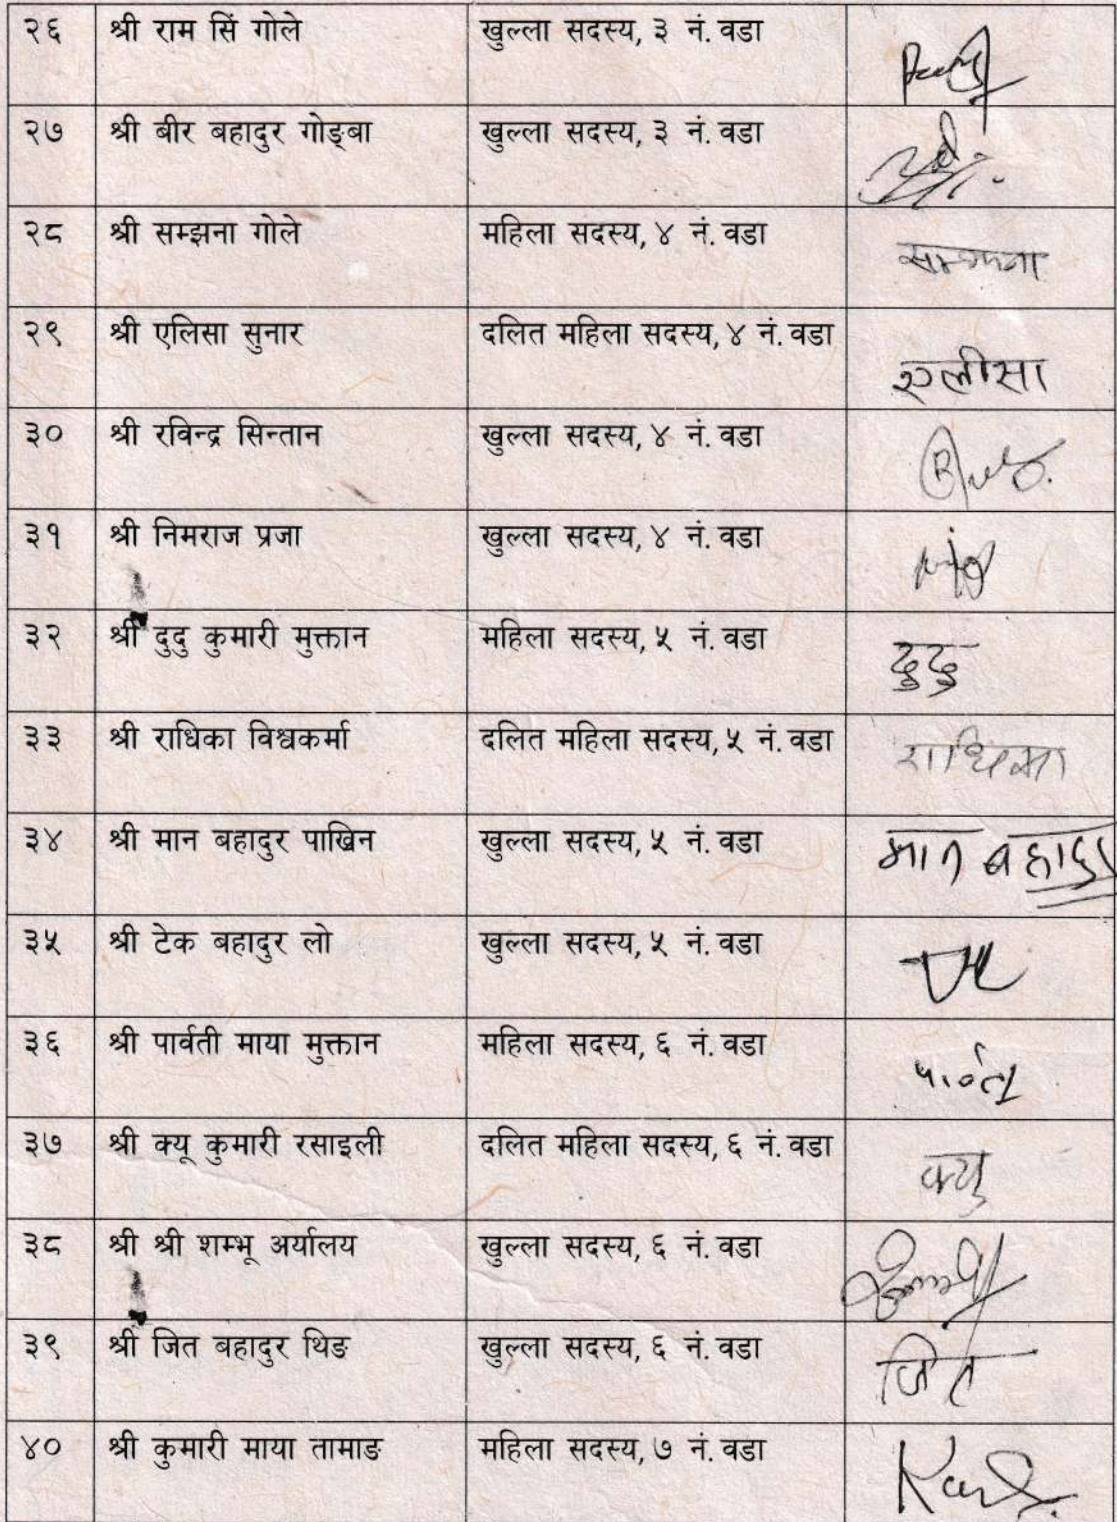 २६ श्री राम सिं गोले खुल्ला सदस्य, ३ नं. वडा
२७ श्री बीर बहादुर गोङ्बा खुल्ला सदस्य, ३ नं. वडा
२८ श्री सम्झना गोले महिला सदस्य, ४ नं. वडा सम्झना
२९ श्री एलिसा सुनार दलित महिला सदस्य, ४ नं. वडा एलीसा
३० श्री रविन्द्र सिन्तान खुल्ला सदस्य, ४ नं. वडा
३१ श्री निमराज प्रजा खुल्ला सदस्य, ४ नं. वडा
३२ श्री दुदु कुमारी मुक्तान महिला सदस्य, ५ नं. वडा दुदु
३३ श्री राधिका विश्वकर्मा दलित महिला सदस्य, ५ नं. वडा राधिका
३४ श्री मान बहादुर पाखिन खुल्ला सदस्य, ५ नं. वडा मान बहादुर
३५ श्री टेक बहादुर लो खुल्ला सदस्य, ५ नं. वडा
३६ श्री पार्वती माया मुक्तान महिला सदस्य, ६ नं. वडा
३७ श्री क्यू कुमारी रसाइली दलित महिला सदस्य, ६ नं. वडा क्यु
३८ श्री श्री शम्भू अर्यालय खुल्ला सदस्य, ६ नं. वडा
३९ श्री जित बहादुर थिङ खुल्ला सदस्य, ६ नं. वडा जित
४० श्री कुमारी माया तामाङ महिला सदस्य, ७ नं. वडा